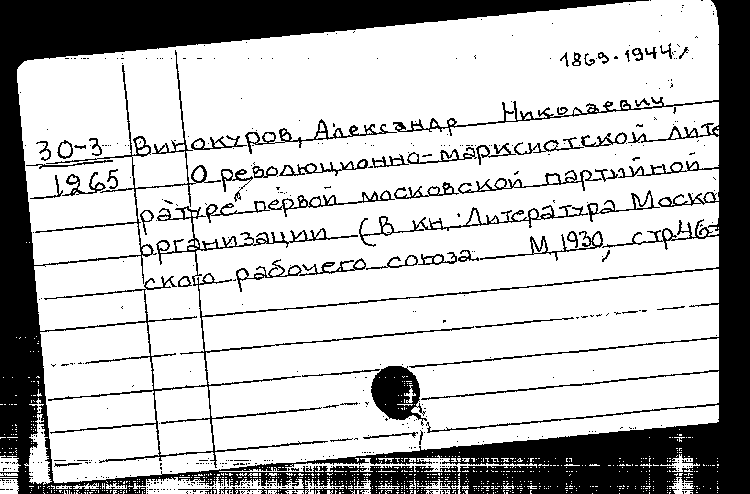 1869-1944
30-3 Винокуров, Александр Николаевич,
1265 О революционно-марксистской лите
ратуре первой московской партийной
организации (В кн. Литература Моско
ского рабочего союза. М, 1930, стр46-